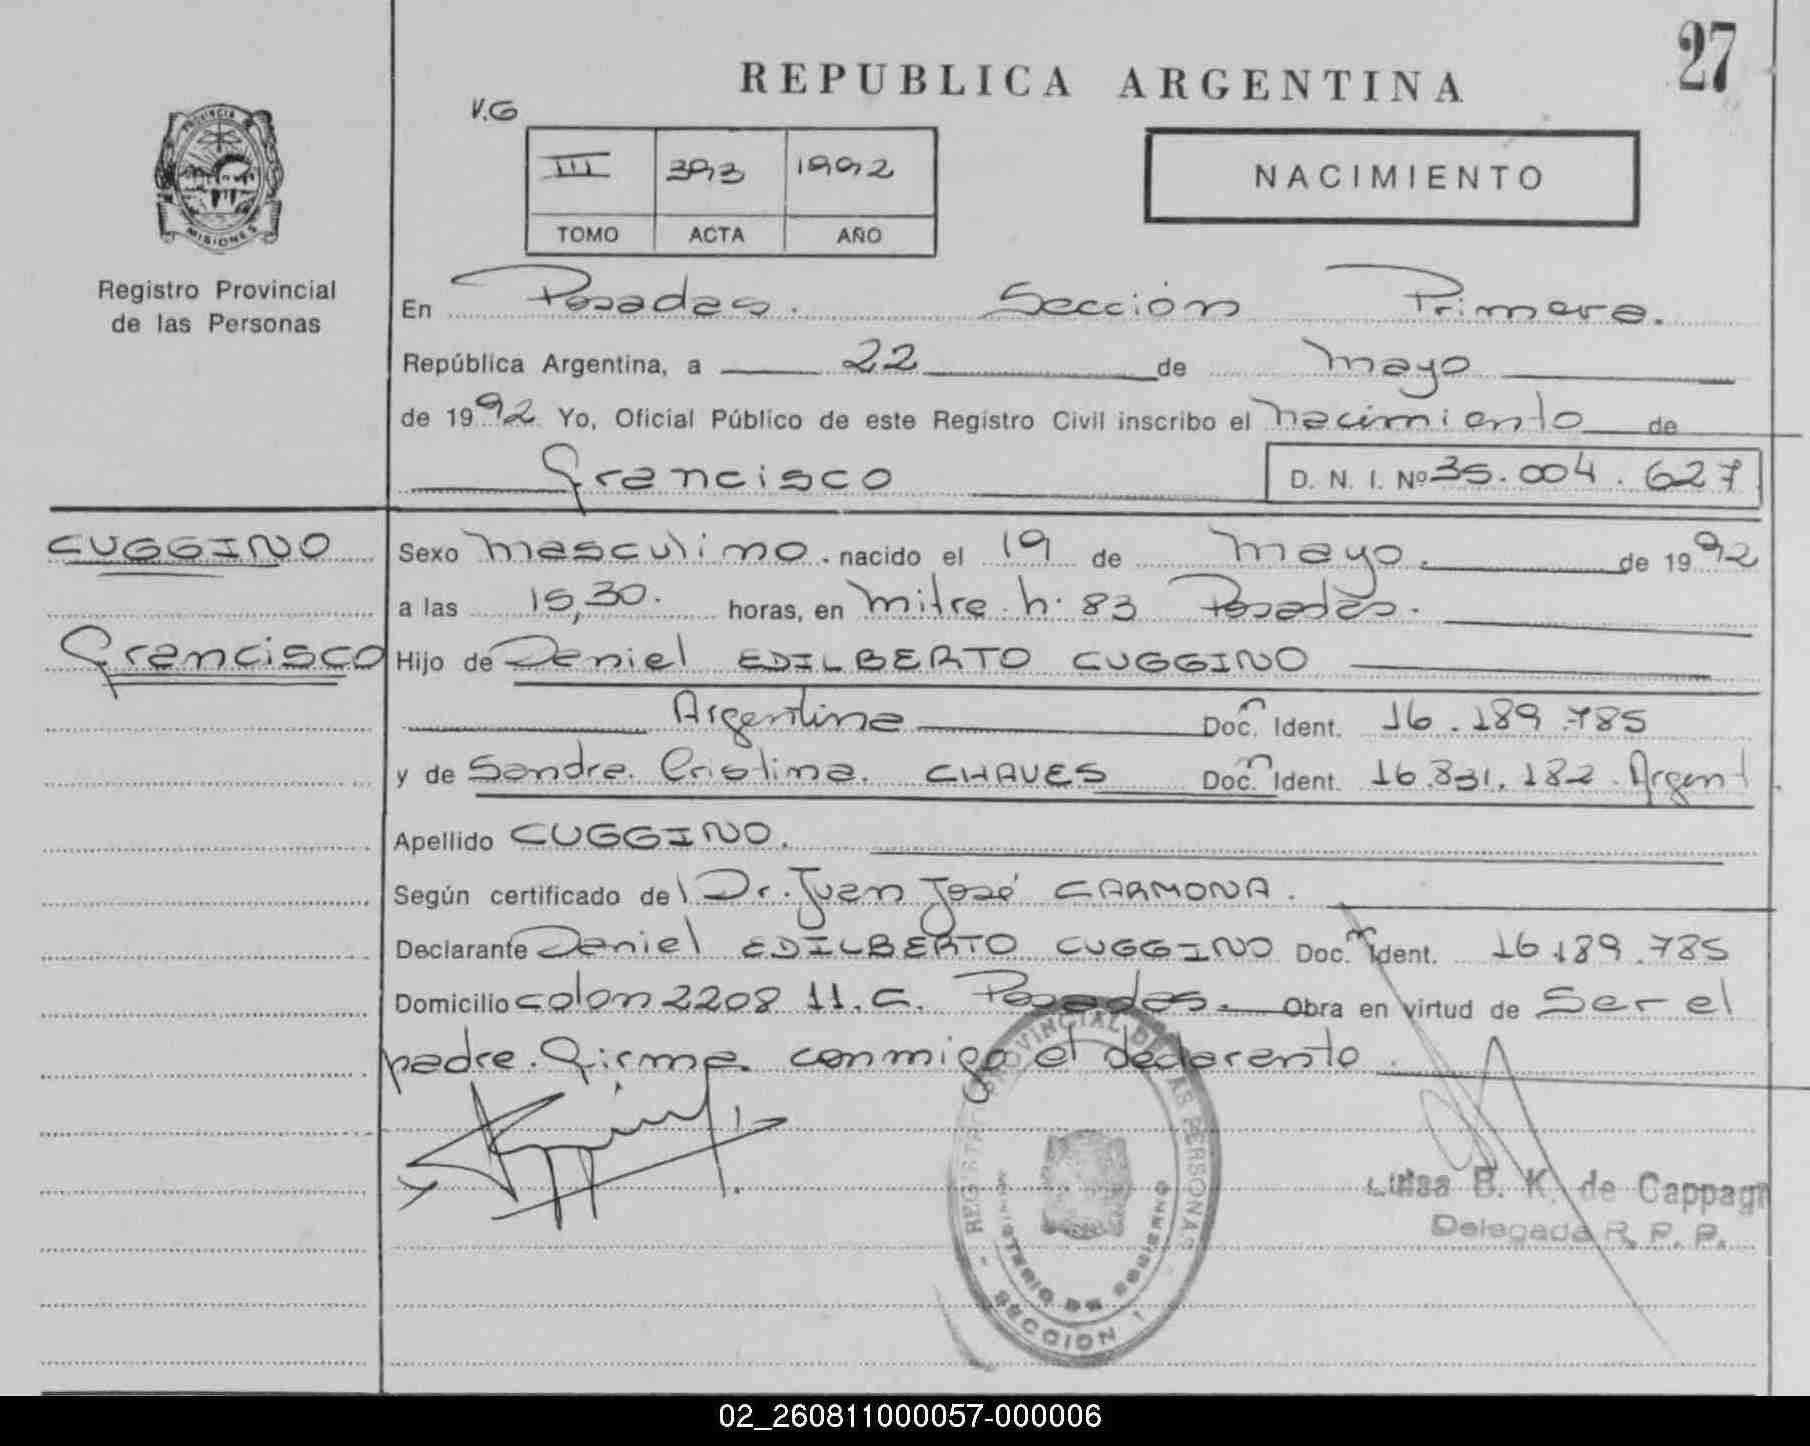 27
REPUBLICA ARGENTINA
V.G
III 393 1992
TOMO ACTA AÑO
NACIMIENTO
PROVINCIA DE
MISIONES
Registro Provincial
de las Personas
En Posadas. Sección Primera.
República Argentina, a 22 de mayo
de 1992 Yo, Oficial Público de este Registro Civil inscribo el nacimiento de
Francisco D. N. I. Nº 35.004.627
CUGGINO
Francisco
Sexo masculino. nacido el 19 de mayo. de 1992
a las 15,30. horas, en mitre n: 83 Posadas.
Hijo de Daniel EDILBERTO CUGGINO
Argentina Doc. Ident. 16.189.785
y de Sandra Cristina. CHAVES Doc. Ident. 16.831.182. Argent
Apellido CUGGINO.
Según certificado del Dr. Juan José CARMONA.
Declarante Daniel EDILBERTO CUGGINO Doc. Ident. 16.189.785
Domicilio colon 2208 11.C. Posadas. Obra en virtud de Ser el
padre. Firma conmigo el declarante.
REGISTRO PROVINCIAL DE LAS PERSONAS
MINISTERIO DE GOBIERNO
SECCION 1
Luisa B. K. de Cappagn
Delegada R. P. P.
02_260811000057-000006